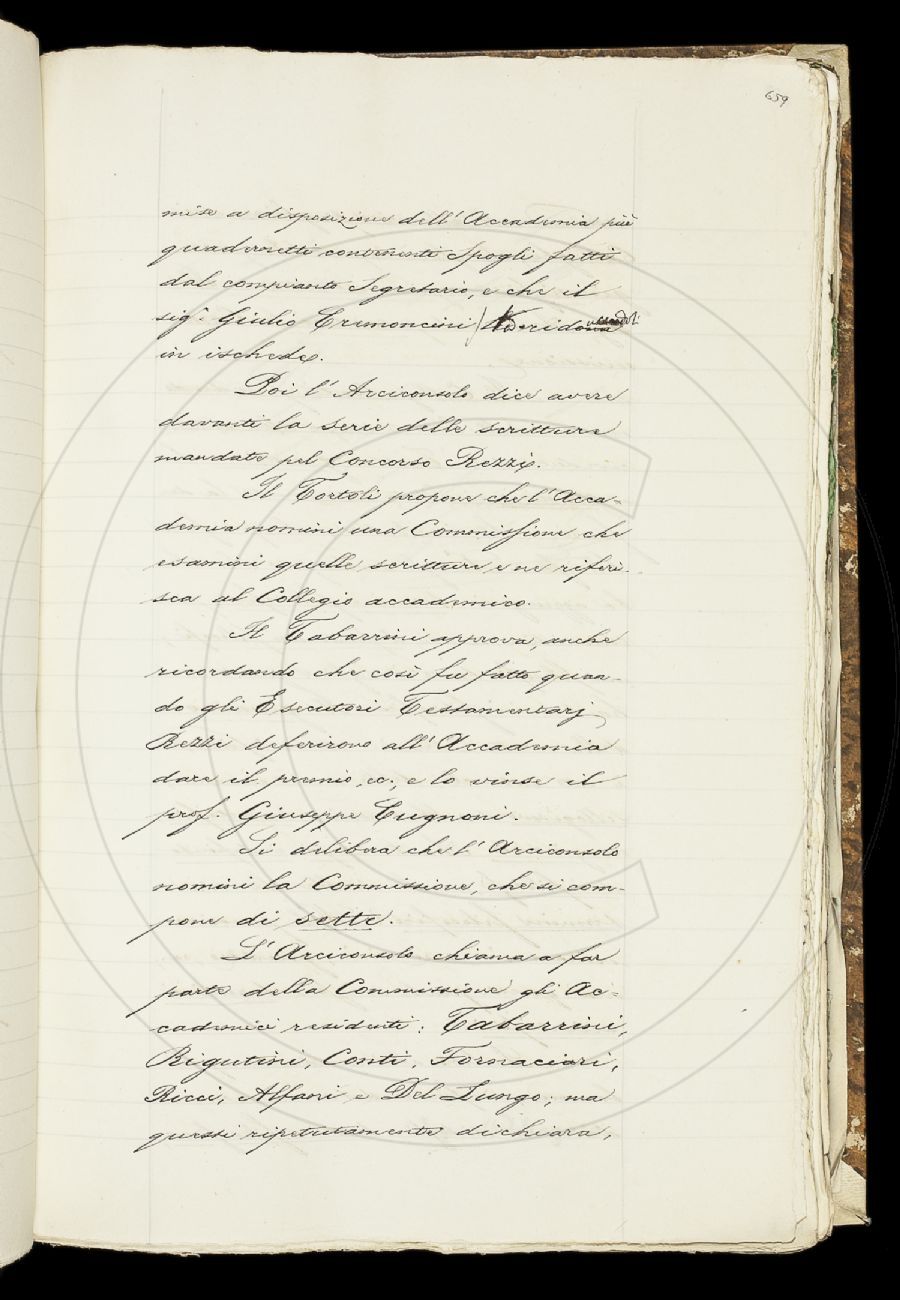 659
mise a disposizione dell' Accademia più
quadernetti contenenti Spogli fatti
dal compianto Segretario, e che il
sig.r Giulio Cremoncini
in ischede.
Poi l' Arciconsolo dice avere
davanti la serie delle scritture
mandate pel Concorso Rezzi.
Il Tortoli propone che l' Acca-
demia nomini una Commissione che
esamini quelle scritture e ne riferi-
sca al Collegio accademico.
Il Tabarrini approva, anche
ricordando che così fu fatto quan-
do gli Esecutori Testamentarj
Rezzi deferirono all' Accademia
dare il premio, ec., e lo vinse il
prof. Giuseppe Cugnoni.
Si delibera che l' Arciconsolo
nomini la Commissione, che si com-
pone di sette.
L' Arciconsolo chiama a far
parte della Commissione gli Ac-
cademici residenti: Tabarrini,
Rigutini, Conti, Fornaciari,
Ricci, Alfani e Del Lungo; ma
questi ripetutamente dichiara,